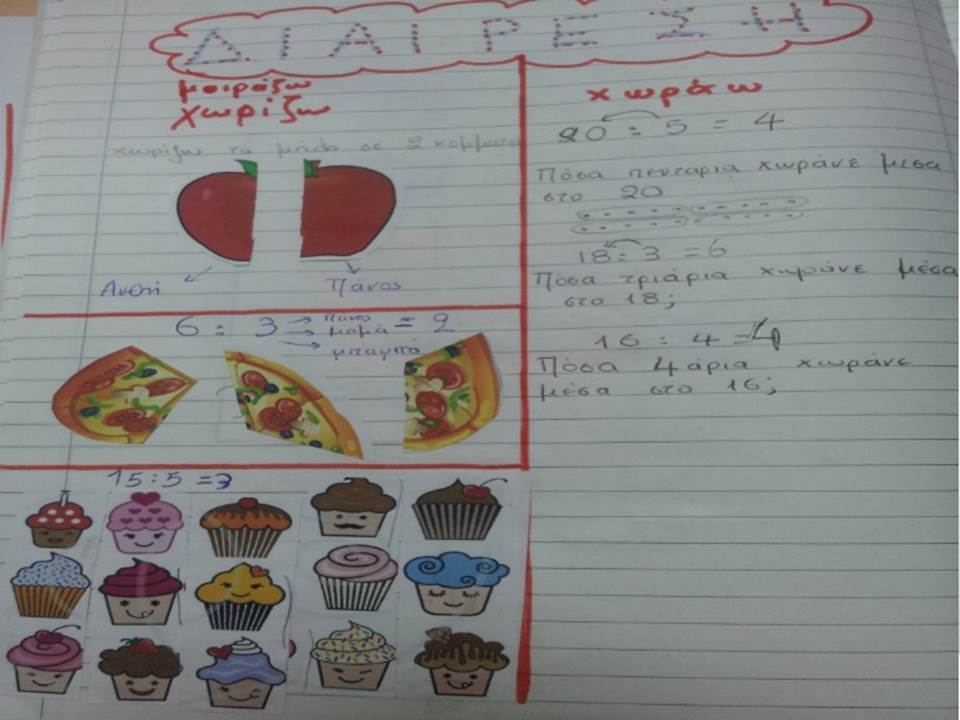 ΔΙΑΙΡΕΣΗ
μοιράζω
χωρίζω
χωρίζω το μήλο σε 2 κομμάτια
Ανθή
Πάνος
6 : 3 = 2
Πάνος
μαμά
μπαμπά
15:5 =3
χωράω
20 : 5 = 4
Πόσα πενταρια χωράνε μέσα
στο 20
18:3 =6
Πόσα τριάρια χωράνε μέσα
στο 18;
16 : 4 =4
Πόσα 4άρια χωράνε
μέσα στο 16;